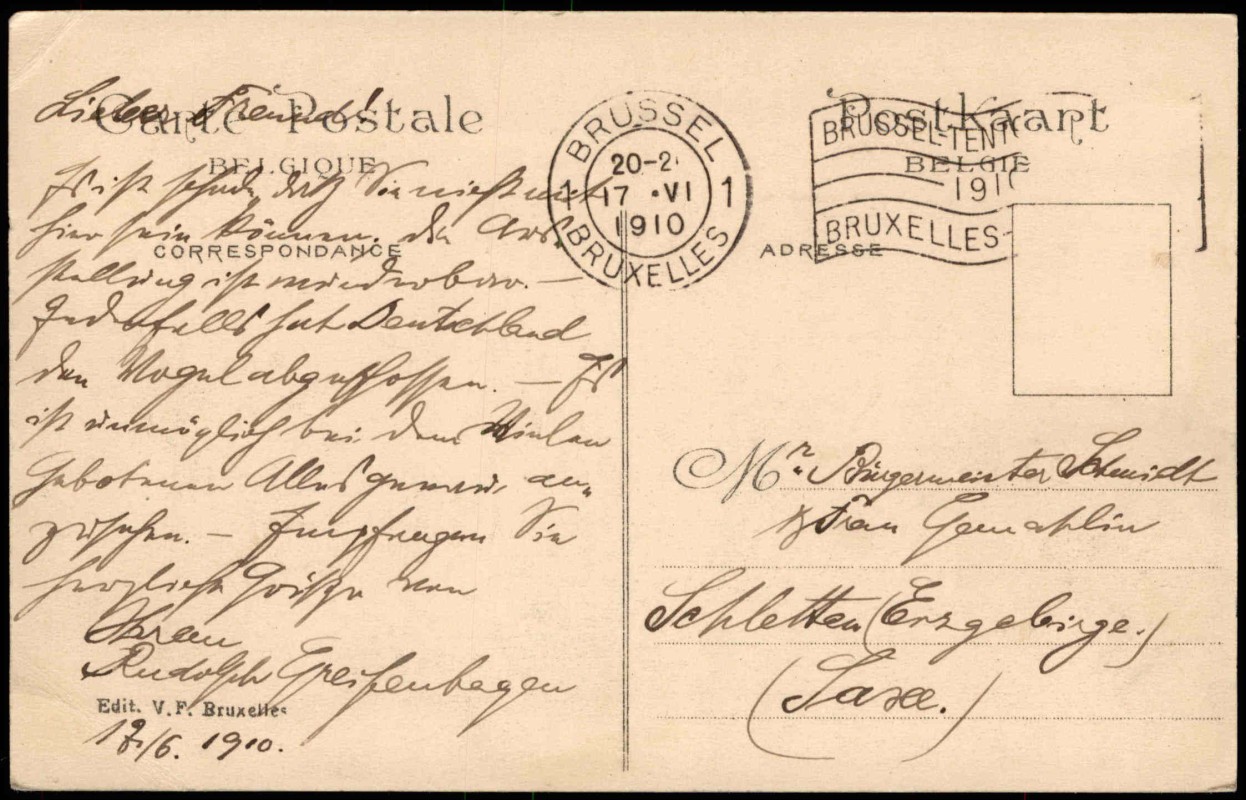 Carte Postale
BELGIQUE
CORRESPONDANCE
Lieber Freund!
Es ist schade, daß Sie nicht mit
hier sein können. die Aus-
stellung ist wunderbar. —
Jedenfalls hat Deutschland
den Vogel abgeschossen. — Es
ist unmöglich bei dem Vielen
Gebotenen Alles genau an„
zusehen. — Empfangen Sie
herzliche Grüße von
Ihrem
Rudolph Greifenhagen
Edit. V. F. Bruxelles
17/6. 1910.
BRUSSEL
1 20-2 1
17 ·VI
1910
BRUXELLES
Postkaart
BELGIE
ADRESSE
BRUSSEL-TENT
1910
BRUXELLES-
Mr. Bürgermeister Schmidt
& Frau Gemahlin
Schletten (Erzgebirge.)
(Saxe.)